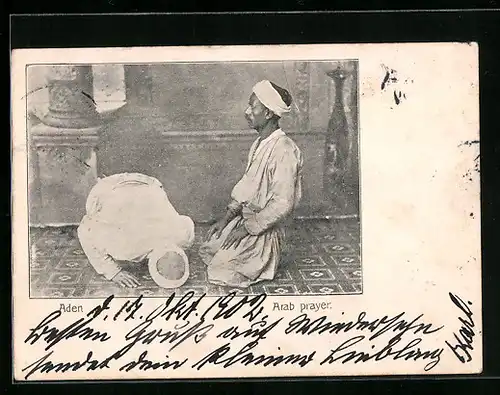 Aden d. 17. Okt. 1902 Arab prayer.
Besten Gruß auf Wiedersehn
sendet dein kleiner Liebling
Karl.